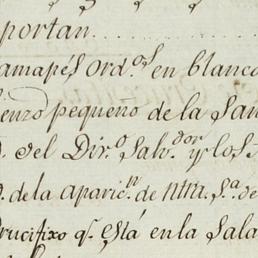 portan . . . . . .
amapés ord.os en blanco
ienzo pequeño de la San
. del Div.o Salv.dor y los S
. de la aparic.n de ntra. S.a de
rucifixo q.e está en la Sala